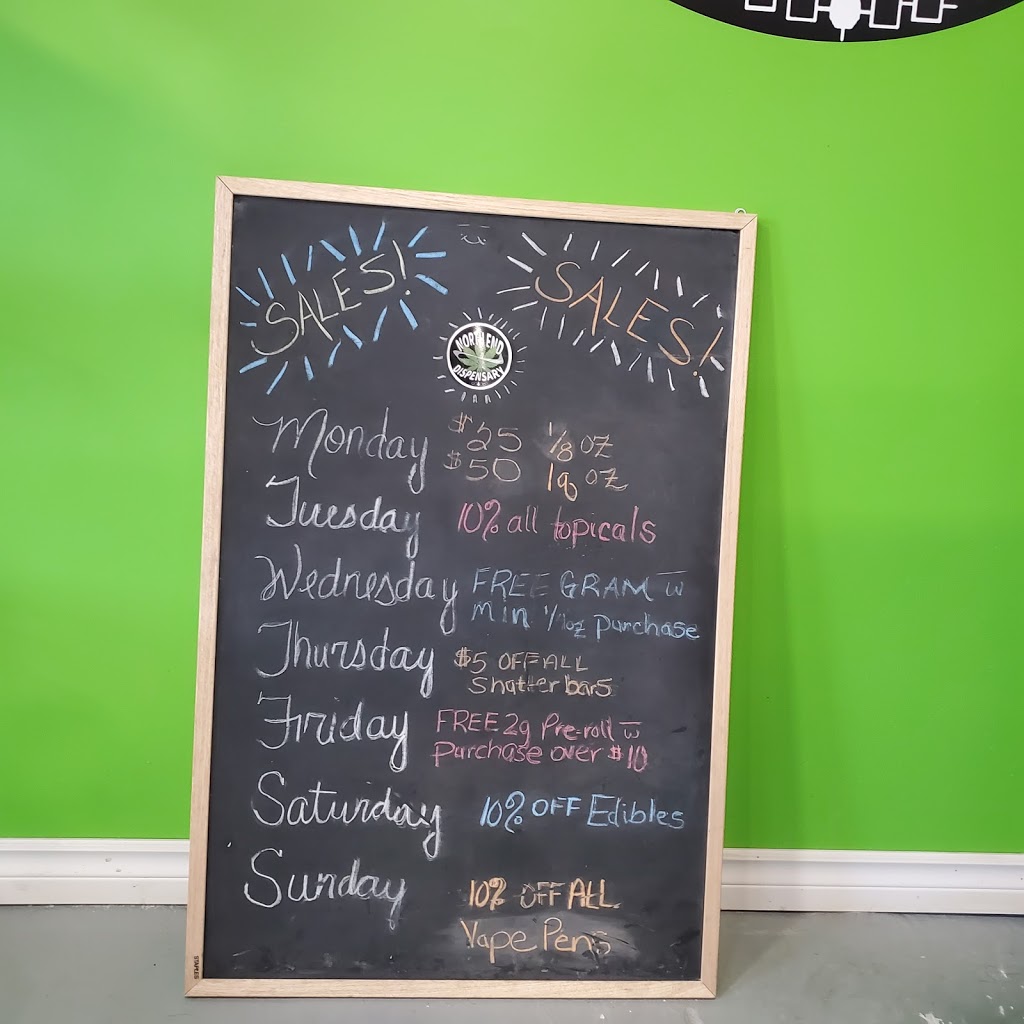 SALES! SALES!
NORTH END
DISPENSARY
Monday $25 1/8 OZ
$50 OZ
Tuesday 10% all topicals
Wednesday FREE GRAM w̅
min 1/4oz purchase
Thursday $5 OFF ALL
Shatter bars
Friday FREE 2g Pre-roll w̅
purchase over $10
Saturday 10% OFF Edibles
Sunday 10% OFF ALL
Vape Pens
STAPLES